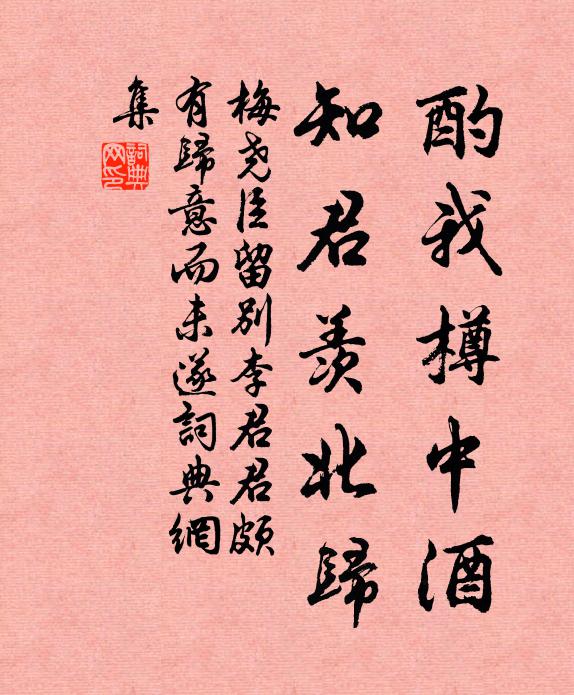 酌我樽中酒
知君羨北歸
梅堯臣留別李君君頗
有歸意而未遂詞典網
集
詞典
网印